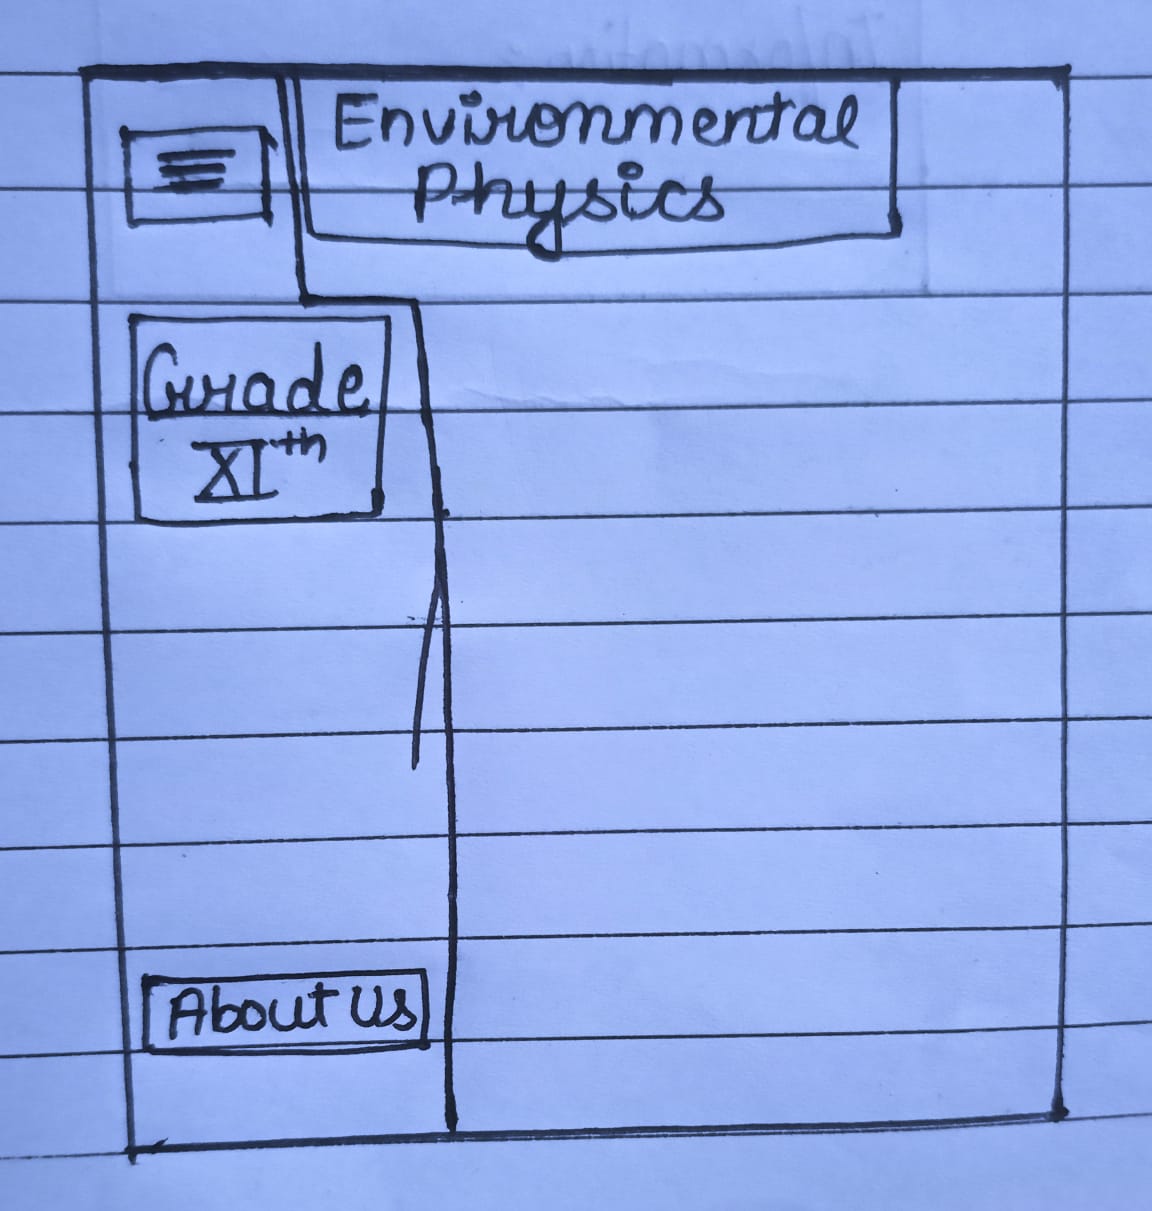 Environmental
Physics
Grade
XIth
About Us